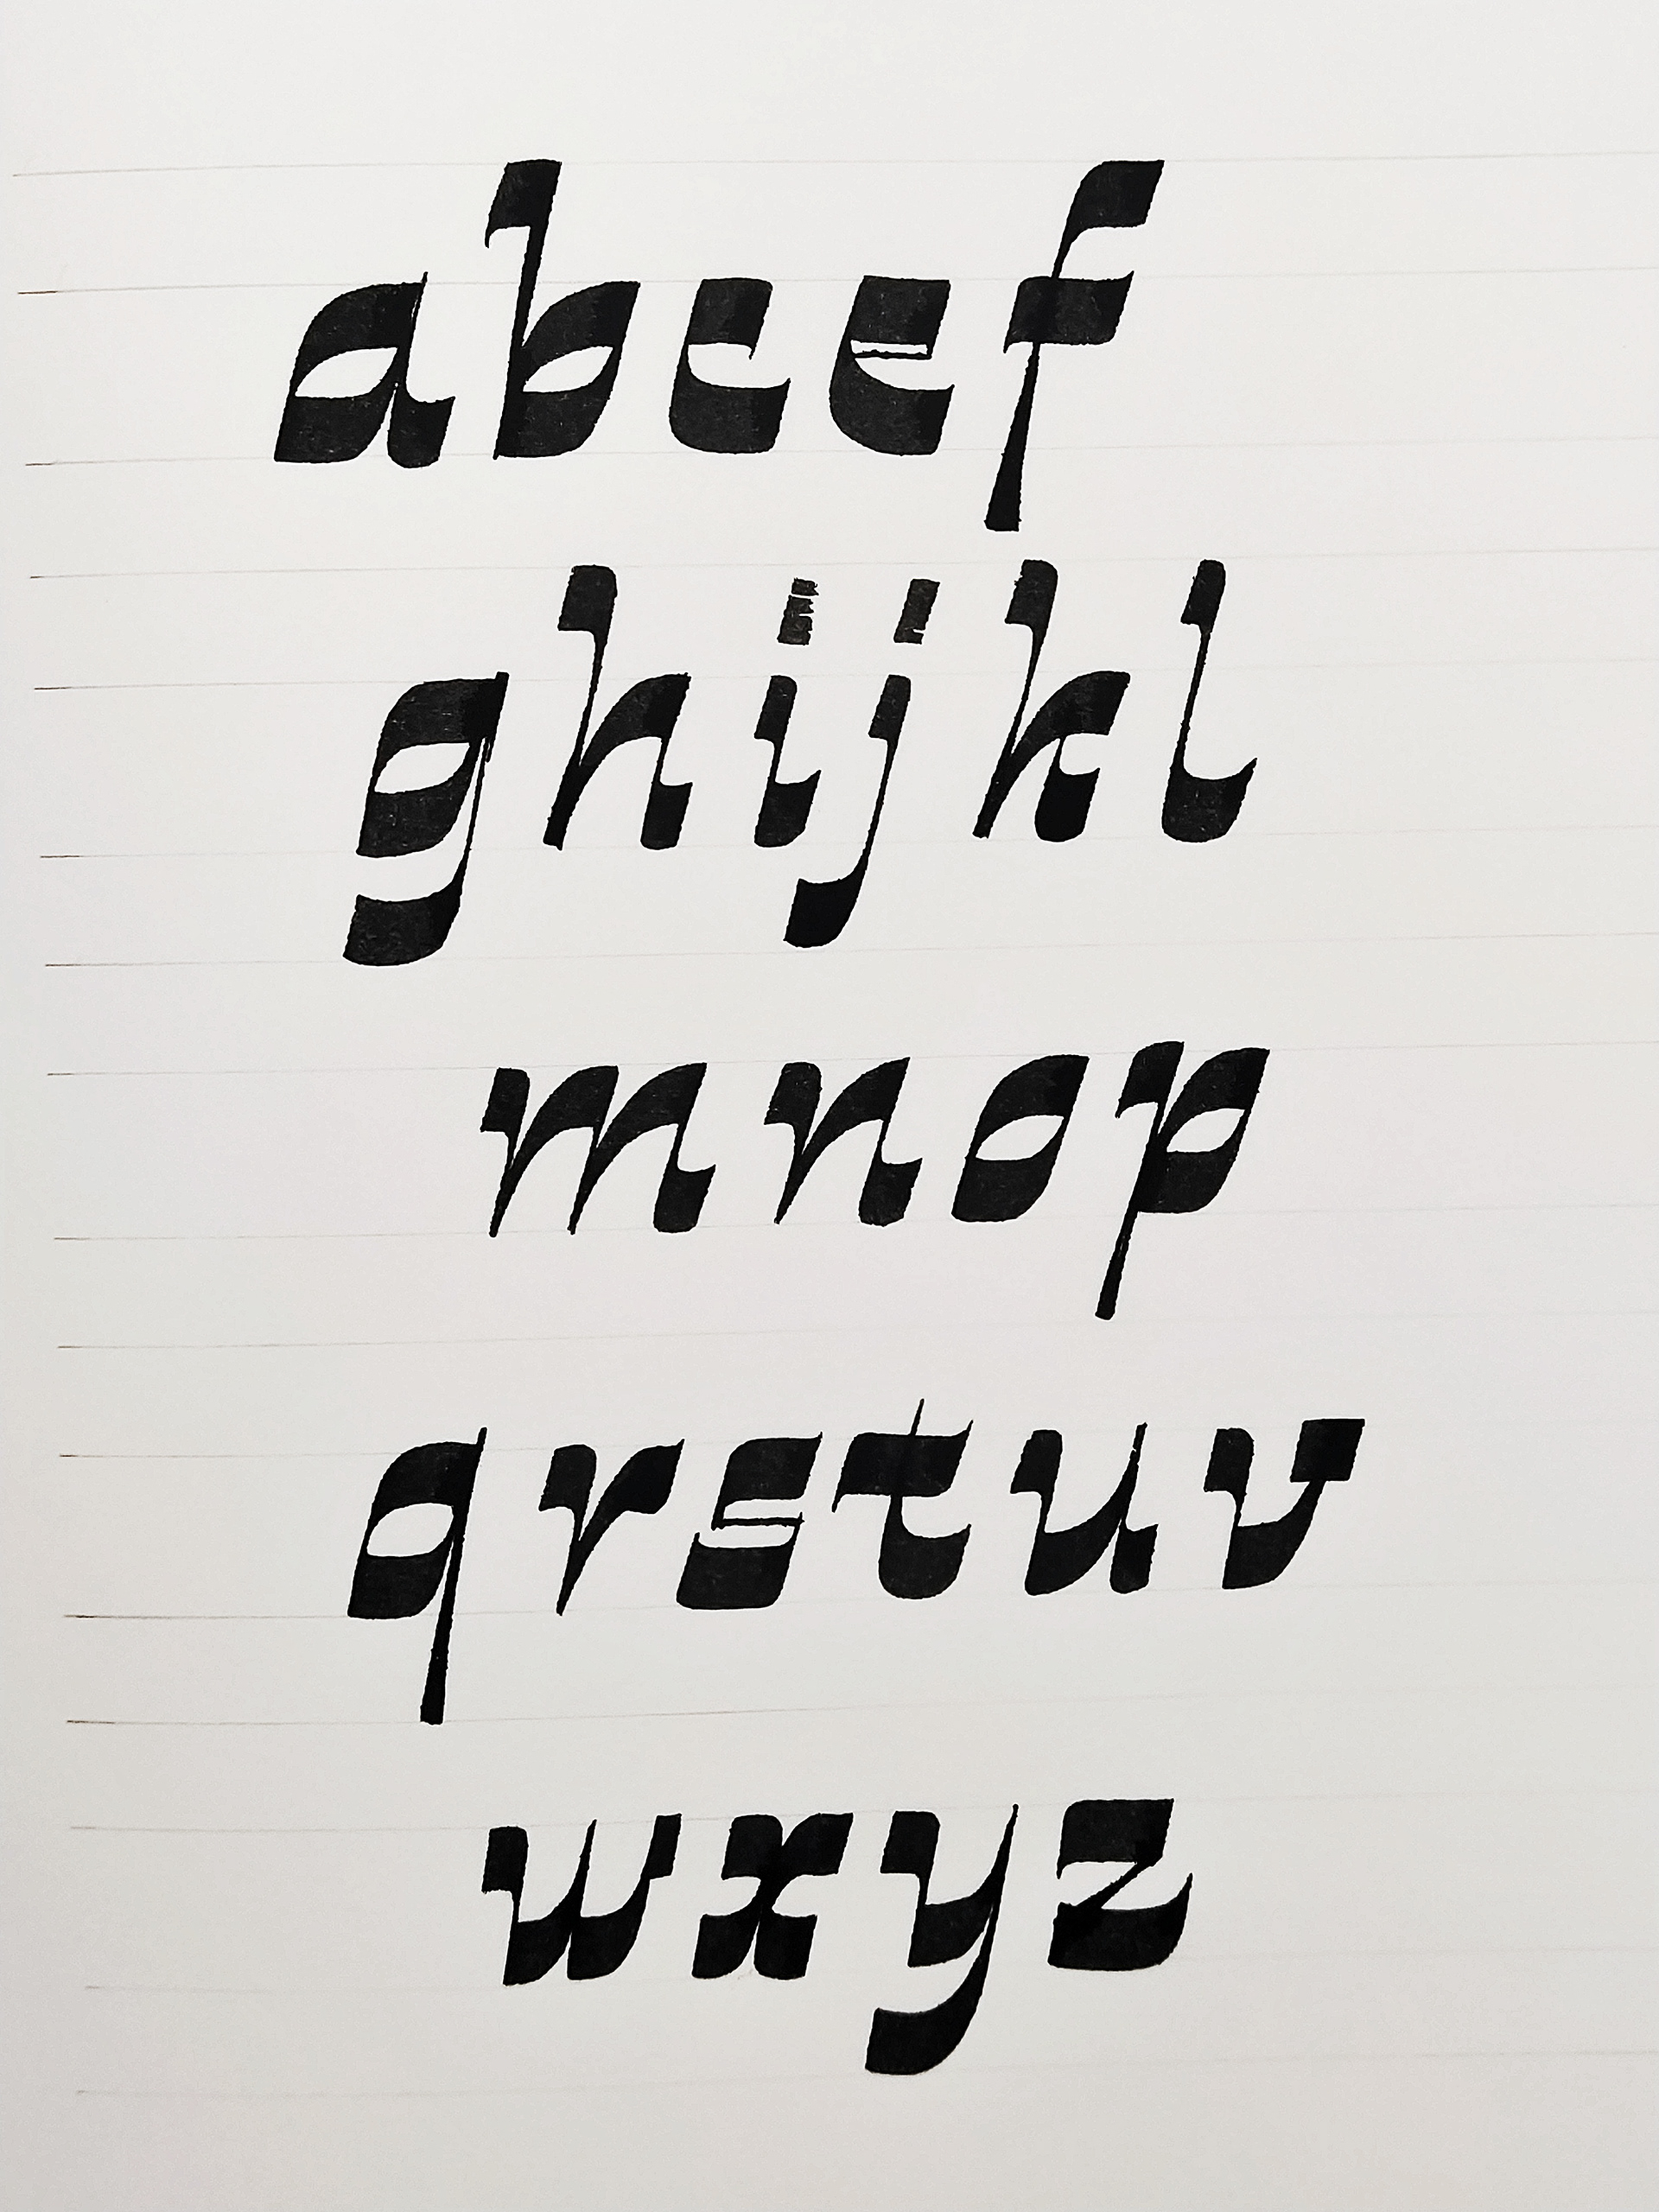 abcef
ghijkl
mnop
qrstuv
wxyz